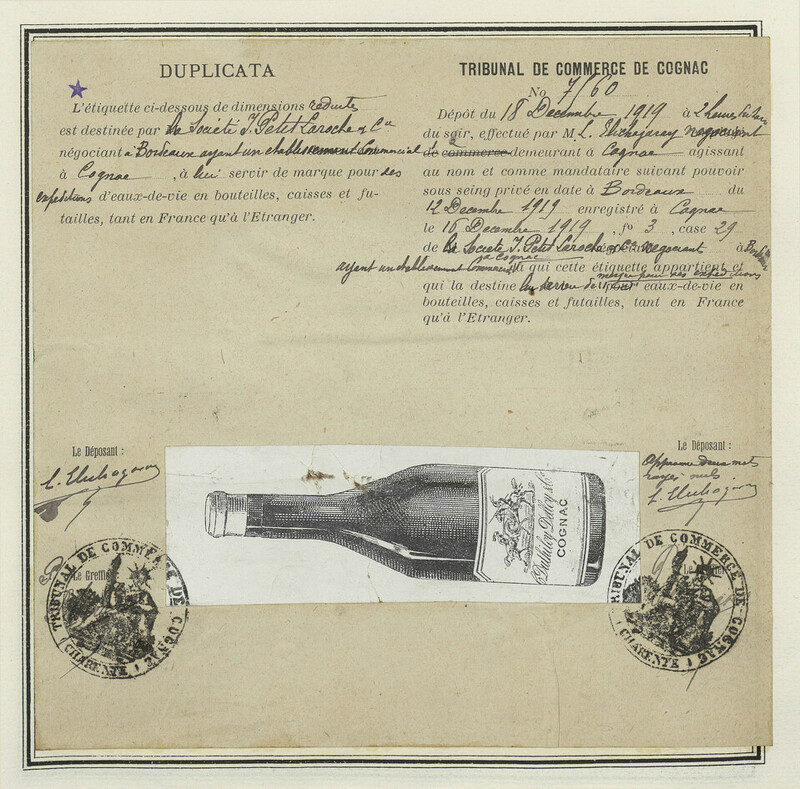 DUPLICATA
L'étiquette ci-dessous de dimensions reduites
est destinée par la Societé J. Petit Laroche & Cie
négociant à Bordeaux ayant un etablissement Commercial
à Cognac, à lui servir de marque pour ses
expeditions d'eaux-de-vie en bouteilles, caisses et fu-
tailles, tant en France qu'à l'Etranger.
TRIBUNAL DE COMMERCE DE COGNAC
No 7/60
Dépôt du 18 Decembre 1919 à 2 heures
du soir, effectué par M L. negociant
de commerce demeurant à Cognac agissant
au nom et comme mandataire suivant pouvoir
sous seing privé en date à Bordeaux du
12 Decembre 1919 enregistré à Cognac
le 16 Decembre 1919, fo 3, case 29
de la Societé J. Petit Laroche & Cie négociant à Bordeaux
à Cognac
ayant un etablissement Commercial à qui cette étiquette appartient et
marque pour ses expeditions
qui la destine eaux-de-vie en
bouteilles, caisses et futailles, tant en France
qu'à l'Etranger.
Le Déposant :
Le Greffier
TRIBUNAL DE COMMERCE DE COGNAC
CHARENTE
COGNAC
Le Déposant :
mots
rayés nuls
TRIBUNAL DE COMMERCE DE COGNAC
CHARENTE